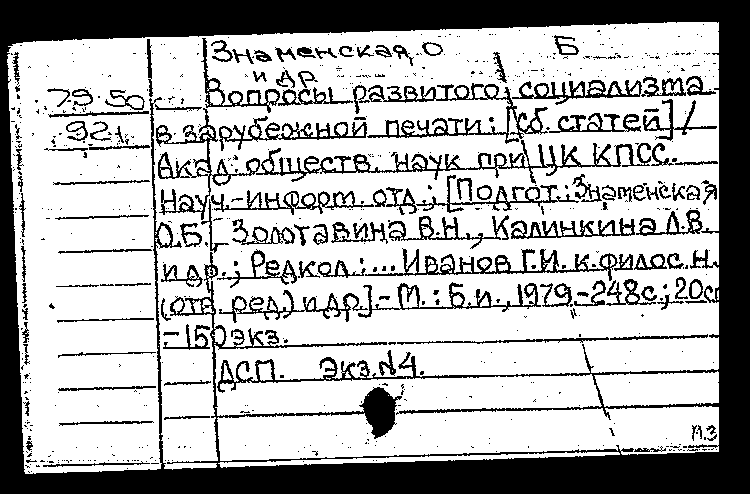 Знаменская О Б
и др
79-50 Вопросы развитого социализма
92 в зарубежной печати: [Сб. статей] /
Акад. обществ. наук при ЦК КПСС.
Науч.-информ. отд.; [Подгот.: Знаменская
О.Б., Золотавина В.Н., Калинкина Л.В.
и др.; Редкол.: ... Иванов Г.И. к. филос. н.
(отв. ред.) и др.]. - М.: Б.и., 1979. - 248с.; 20см
- 150 экз.
ДСП. Экз. №4.